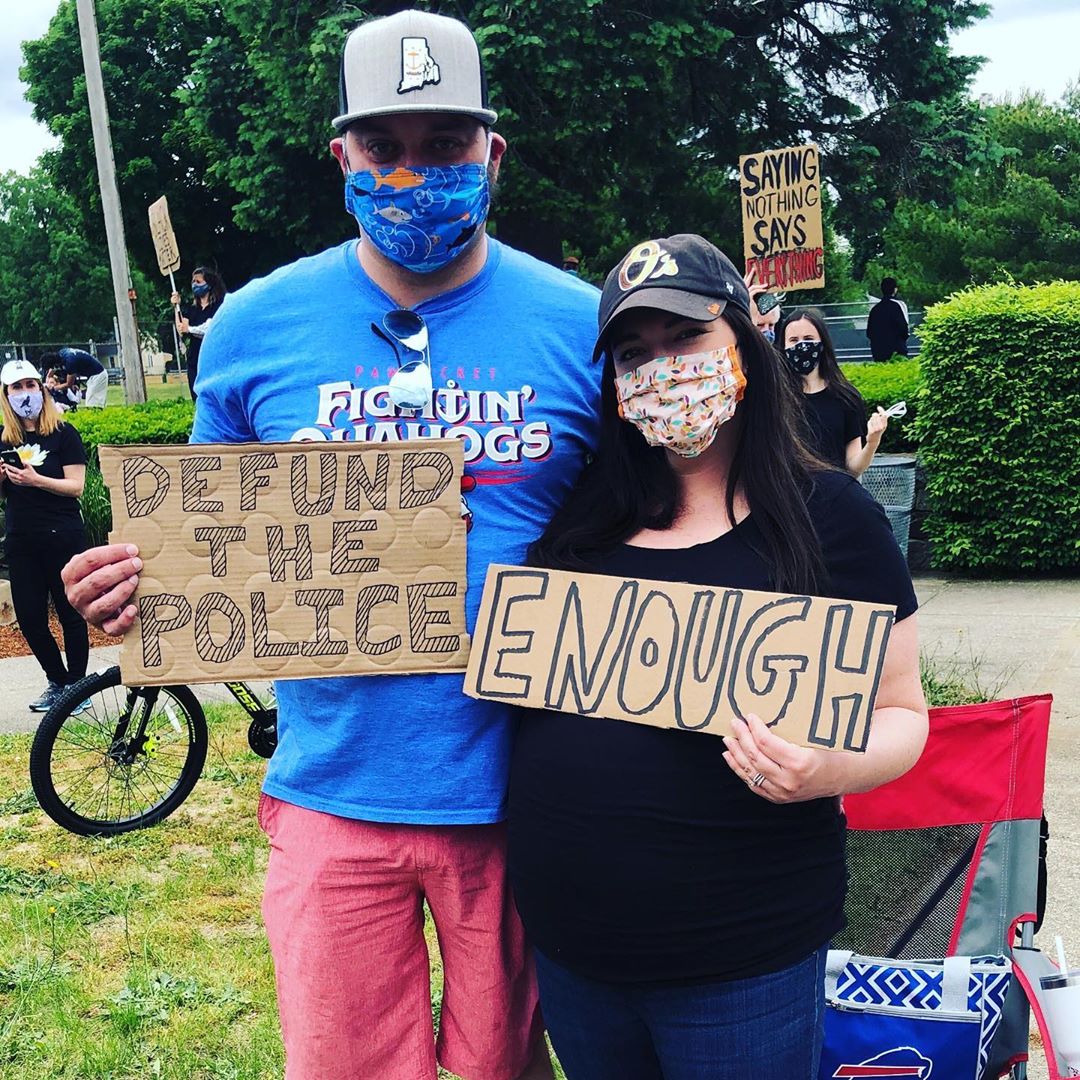 SAYING
NOTHING
SAYS
EVERYTHING
O's
PAWTUCKET
FIGHTIN'
QUAHOGS
DEFUND
THE
POLICE
ENOUGH